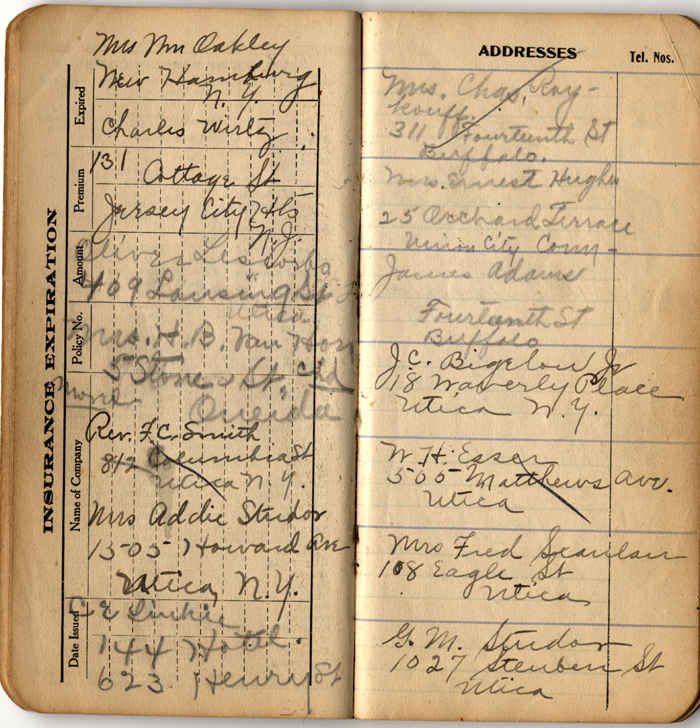 INSURANCE EXPIRATION
Expired
Premium
Amount
Policy No.
Name of Company
Date Issued
Mrs Wm Oakley
New Hamburg
N. Y.
Charles Wirtz
131
Cottage St
Jersey City Hts
N. J.
409 Lansing St
Utica
Mrs. H. B. Van Horn
5 Stone St.
Oneida
Rev. F. C. Smith
812 Columbia St
Utica N. Y.
Mrs Addie Studor
1505 Howard Ave
Utica, N. Y.
144 Hotel.
623. Henry St
ADDRESSES
Tel. Nos.
Mrs. Chas, Roy-
311 Fourteenth St
Buffalo.
Mrs. Ernest Hughes
25 Orchard Terrace
Union City Conn-
James Adams
Fourteenth St
Buffalo
J. C. Bigelow Jr
18 Waverly Place
Utica N. Y.
W. H. Esser
505 Matthews Ave.
Utica
Mrs Fred Scanlan
108 Eagle St
Utica
G. M. Studor
1027 Steuben St
Utica